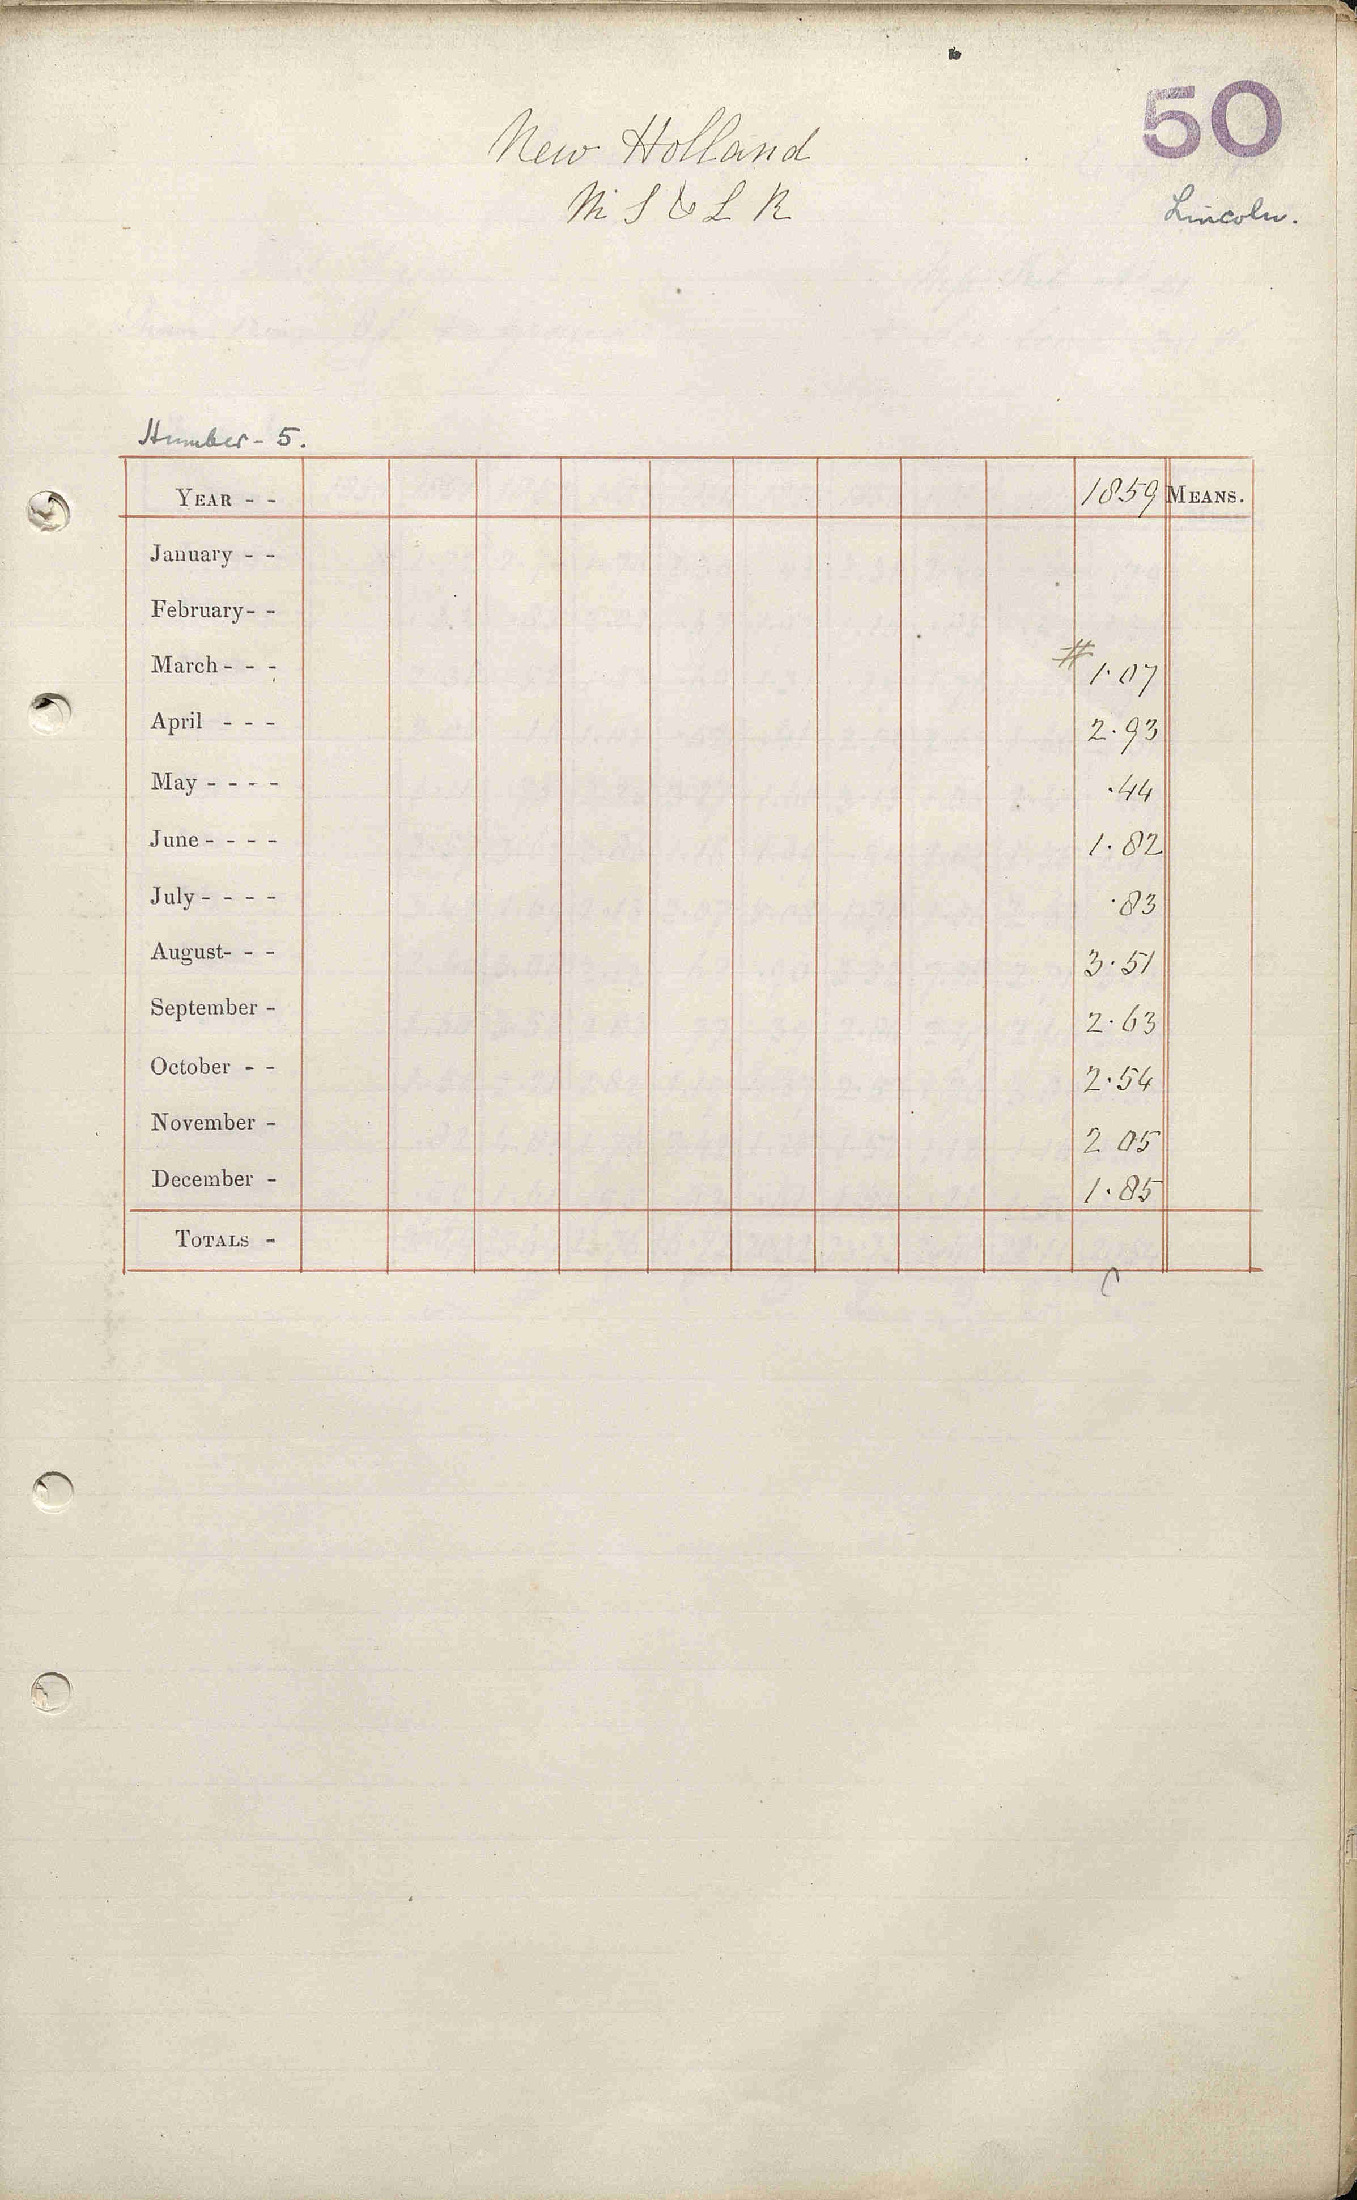 50
New Holland
M S & L R
Lincoln.
Humber - 5.
YEAR - - 1859 MEANS.
January - -
February - -
March - - - # 1.07
April - - - 2.93
May - - - - .44
June - - - - 1.82
July - - - - .83
August - - - 3.51
September - 2.63
October - - 2.54
November - 2 05
December - 1.85
TOTALS -